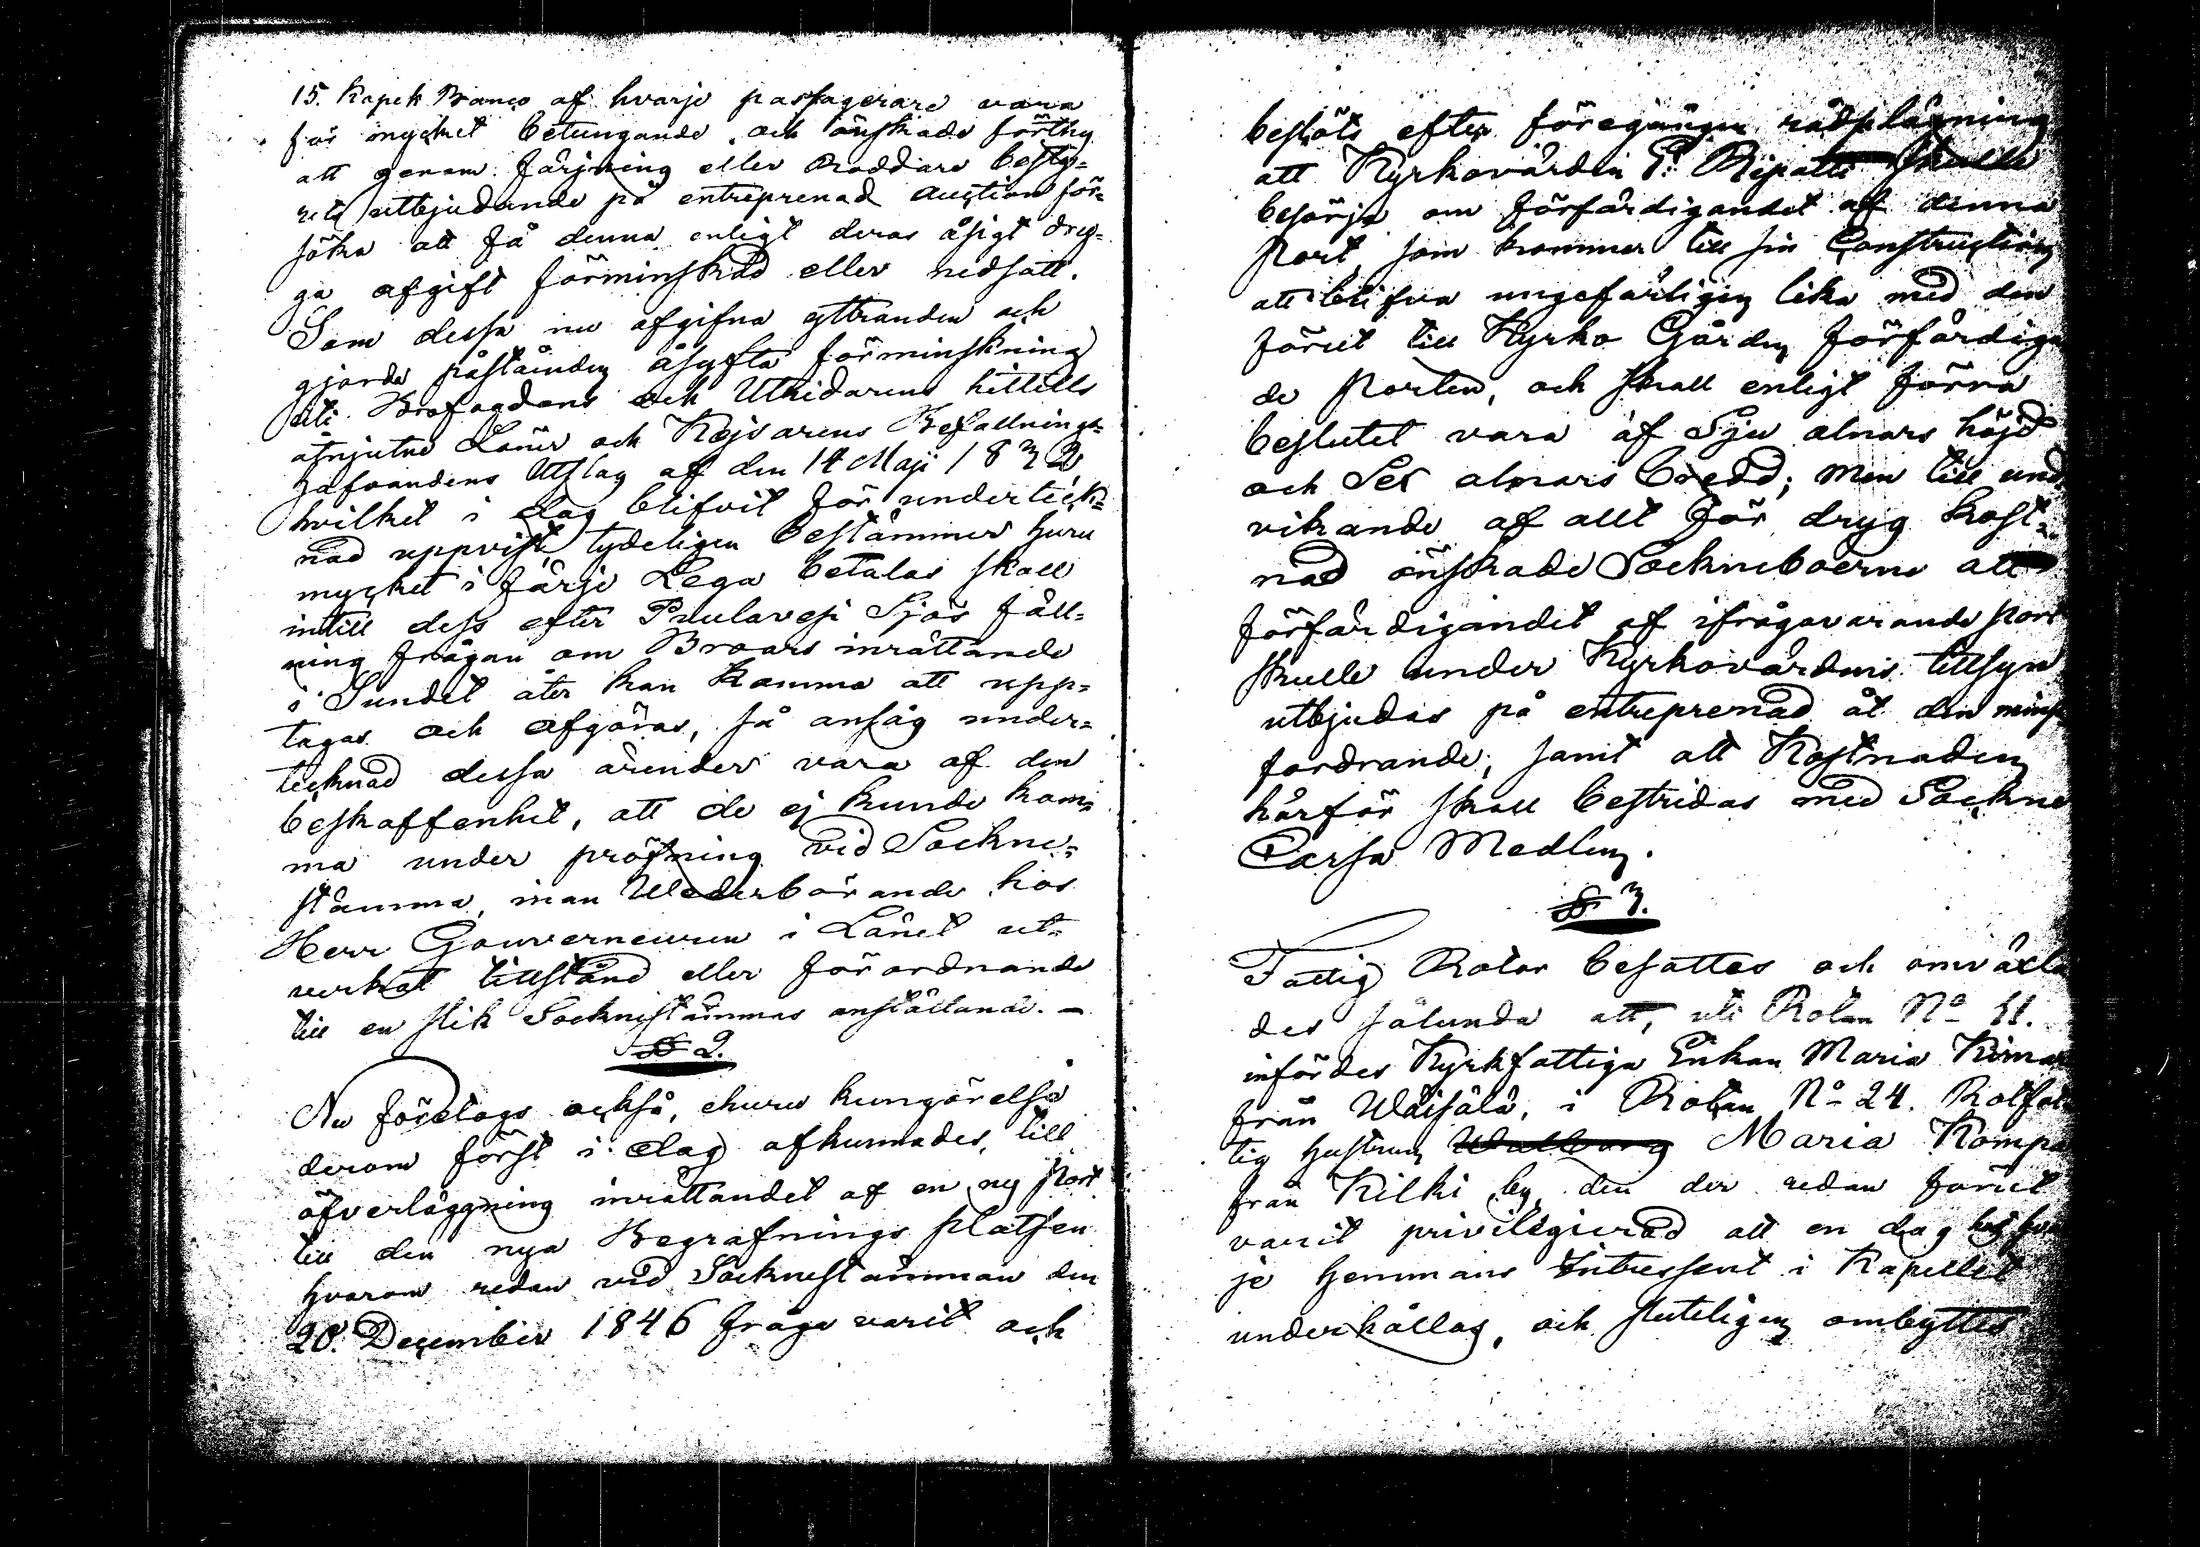 15. Kopek Banco af hvarje passagerare vara
för mycket betungande och önskade förthy
att genom färjning eller Roddare besty-
rets utbjudande på entreprenad auction för-
söka att få denna enligt deras åsigt dry-
ga afgift förminskad eller nedsatt.
Som dessa nu afgifna yttranden och
gjorda påståenden åsyfta förminskning
uti Brofogdens och Utridarens hittills
åtnjutne Löner och Kejsarens Befallnings-
hafvandens Utslag af den 14 Maji 1832
hvilket i dag blifvit för underteck-
nad uppvist tydeligen bestämmer huru
mycket i färje Lega betalas skall
intill dess efter Puulavesi Sjös fäll-
ning frågan om Broars inrättande
i Sundet åter kan komma att upp-
tagas och afgöras, så ansåg under-
tecknad dessa ärender vara af den
beskaffenhet, att de ej kunde kom-
ma under pröfning vid Sockne-
stämma, innan Wederbörande hos
Herr Gouverneuren i Länet ut-
verkat tillstånd eller förordnande
till en slik Socknestämmas anställande. -
§ 2.
Nu företogs också, ehuru kungörelse
derom först i dag afkunnades, till
öfverläggning inrättandet af en ny Port
till den nya Begrafnings platsen
hvarom redan vid Socknestämman den
20. December 1846 fråga varit och
beslöts efter föregången rådplägning
att Kyrkovärden P. Ripatti skulle
besörja om förfärdigandet af denna
Port, som kommer till sin Construction
att blifva ungefärligen lika med den
förut till Kyrko Gården förfärdiga
de Porten, och skall enligt förra
beslutet vara af Sju alnars höjd
och Sex alnars bredd; men till und
vikande af allt för dryg kost-
nad önskade Sockneboerne att
förfärdigandet af ifrågavarande Port
skulle under Kyrkovärdens tillsyn
utbjudas på entreprenad åt den minst
fordrande, samt att Kostnaden
härför skall bestridas med Sockne
Cassa Medlen.
§ 3.
Fattig Rotar besattes och omväxla
des sålunda att, uti Rotan No 11.
infördes Kyrkfattiga Enkan Maria
från Wäisälä, i Rotan No 24. Rotfat
tig hustrun Walborg Maria Kompa
från Kilki by, den der redan förut
varit privilegierad att en dag hos hvar
je Hemmans Intressent i Kapellet
underhållas, och sluteligen ombyttes